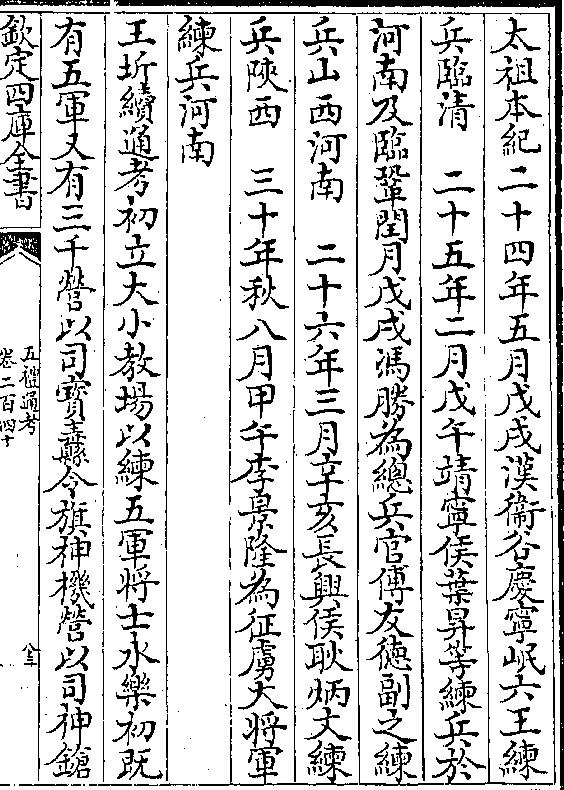 太祖本紀二十四年五月戊戌漢衞谷慶寧岷六王練
兵臨清　二十五年二月戊午靖寧侯葉昇等練兵於
河南及臨鞏閏月戊戌馮勝為總兵官傅友德副之練
兵山西河南　二十六年三月辛亥長興侯耿炳文練
兵陜西　三十年秋八月甲午李景隆為征虜大將軍
練兵河南
王圻續通考初立大小教場以練五軍將士永樂初既
有五軍又有三千營以司寳纛令旗神機營以司神鎗
欽定四庫全書
五禮通考
卷二百四十